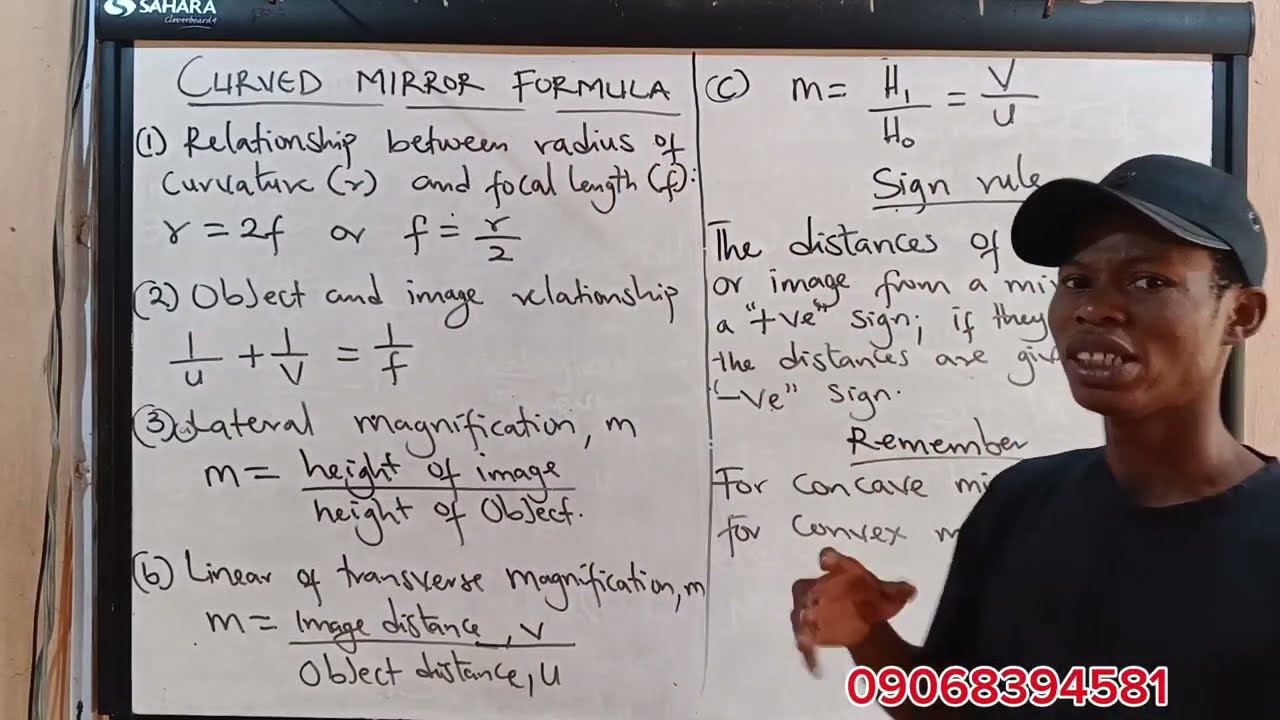 SAHARA
Cleverboard4
CURVED MIRROR FORMULA
(1) Relationship between radius of
curvature (r) and focal length (f):
r = 2f or f = r/2
(2) Object and image relationship
1/u + 1/v = 1/f
(3) a Lateral magnification, m
m = height of image
height of Object.
(b) Linear of transverse magnification, m
m = Image distance, v
Object distance, u
(c) m = H₁/H₀ = V/u
Sign rule
The distances of
or image from a
a "+ve" sign; if they
the distances are
"-ve" sign.
Remember
For concave
for convex
09068394581